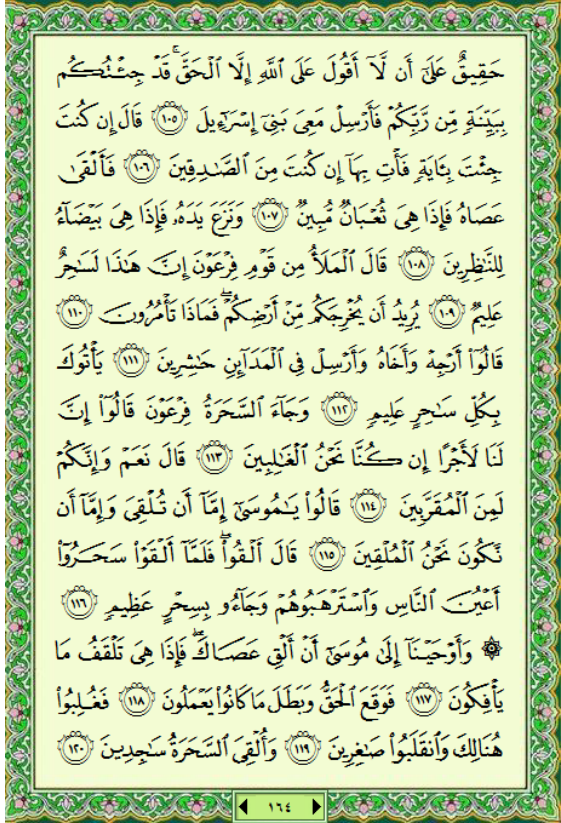 حَقِيقٌ عَلَىٰٓ أَن لَّآ أَقُولَ عَلَى ٱللَّهِ إِلَّا ٱلْحَقَّ ۚ قَدْ جِئْتُكُم
بِبَيِّنَةٍ مِّن رَّبِّكُمْ فَأَرْسِلْ مَعِىَ بَنِىٓ إِسْرَٰٓءِيلَ ﴿١٠٥﴾ قَالَ إِن كُنتَ
جِئْتَ بِـَٔايَةٍ فَأْتِ بِهَآ إِن كُنتَ مِنَ ٱلصَّـٰدِقِينَ ﴿١٠٦﴾ فَأَلْقَىٰ
عَصَاهُ فَإِذَا هِىَ ثُعْبَانٌ مُّبِينٌ ﴿١٠٧﴾ وَنَزَعَ يَدَهُۥ فَإِذَا هِىَ بَيْضَآءُ
لِلنَّـٰظِرِينَ ﴿١٠٨﴾ قَالَ ٱلْمَلَأُ مِن قَوْمِ فِرْعَوْنَ إِنَّ هَـٰذَا لَسَـٰحِرٌ
عَلِيمٌ ﴿١٠٩﴾ يُرِيدُ أَن يُخْرِجَكُم مِّنْ أَرْضِكُمْ ۖ فَمَاذَا تَأْمُرُونَ ﴿١١٠﴾
قَالُوٓا۟ أَرْجِهْ وَأَخَاهُ وَأَرْسِلْ فِى ٱلْمَدَآئِنِ حَـٰشِرِينَ ﴿١١١﴾ يَأْتُوكَ
بِكُلِّ سَـٰحِرٍ عَلِيمٍ ﴿١١٢﴾ وَجَآءَ ٱلسَّحَرَةُ فِرْعَوْنَ قَالُوٓا۟ إِنَّ
لَنَا لَأَجْرًا إِن كُنَّا نَحْنُ ٱلْغَـٰلِبِينَ ﴿١١٣﴾ قَالَ نَعَمْ وَإِنَّكُمْ
لَمِنَ ٱلْمُقَرَّبِينَ ﴿١١٤﴾ قَالُوا۟ يَـٰمُوسَىٰٓ إِمَّآ أَن تُلْقِىَ وَإِمَّآ أَن
نَّكُونَ نَحْنُ ٱلْمُلْقِينَ ﴿١١٥﴾ قَالَ أَلْقُوا۟ ۖ فَلَمَّآ أَلْقَوْا۟ سَحَرُوٓا۟
أَعْيُنَ ٱلنَّاسِ وَٱسْتَرْهَبُوهُمْ وَجَآءُو بِسِحْرٍ عَظِيمٍ ﴿١١٦﴾
۞ وَأَوْحَيْنَآ إِلَىٰ مُوسَىٰٓ أَنْ أَلْقِ عَصَاكَ ۖ فَإِذَا هِىَ تَلْقَفُ مَا
يَأْفِكُونَ ﴿١١٧﴾ فَوَقَعَ ٱلْحَقُّ وَبَطَلَ مَا كَانُوا۟ يَعْمَلُونَ ﴿١١٨﴾ فَغُلِبُوا۟
هُنَالِكَ وَٱنقَلَبُوا۟ صَـٰغِرِينَ ﴿١١٩﴾ وَأُلْقِىَ ٱلسَّحَرَةُ سَـٰجِدِينَ ﴿١٢٠﴾
١٦٤